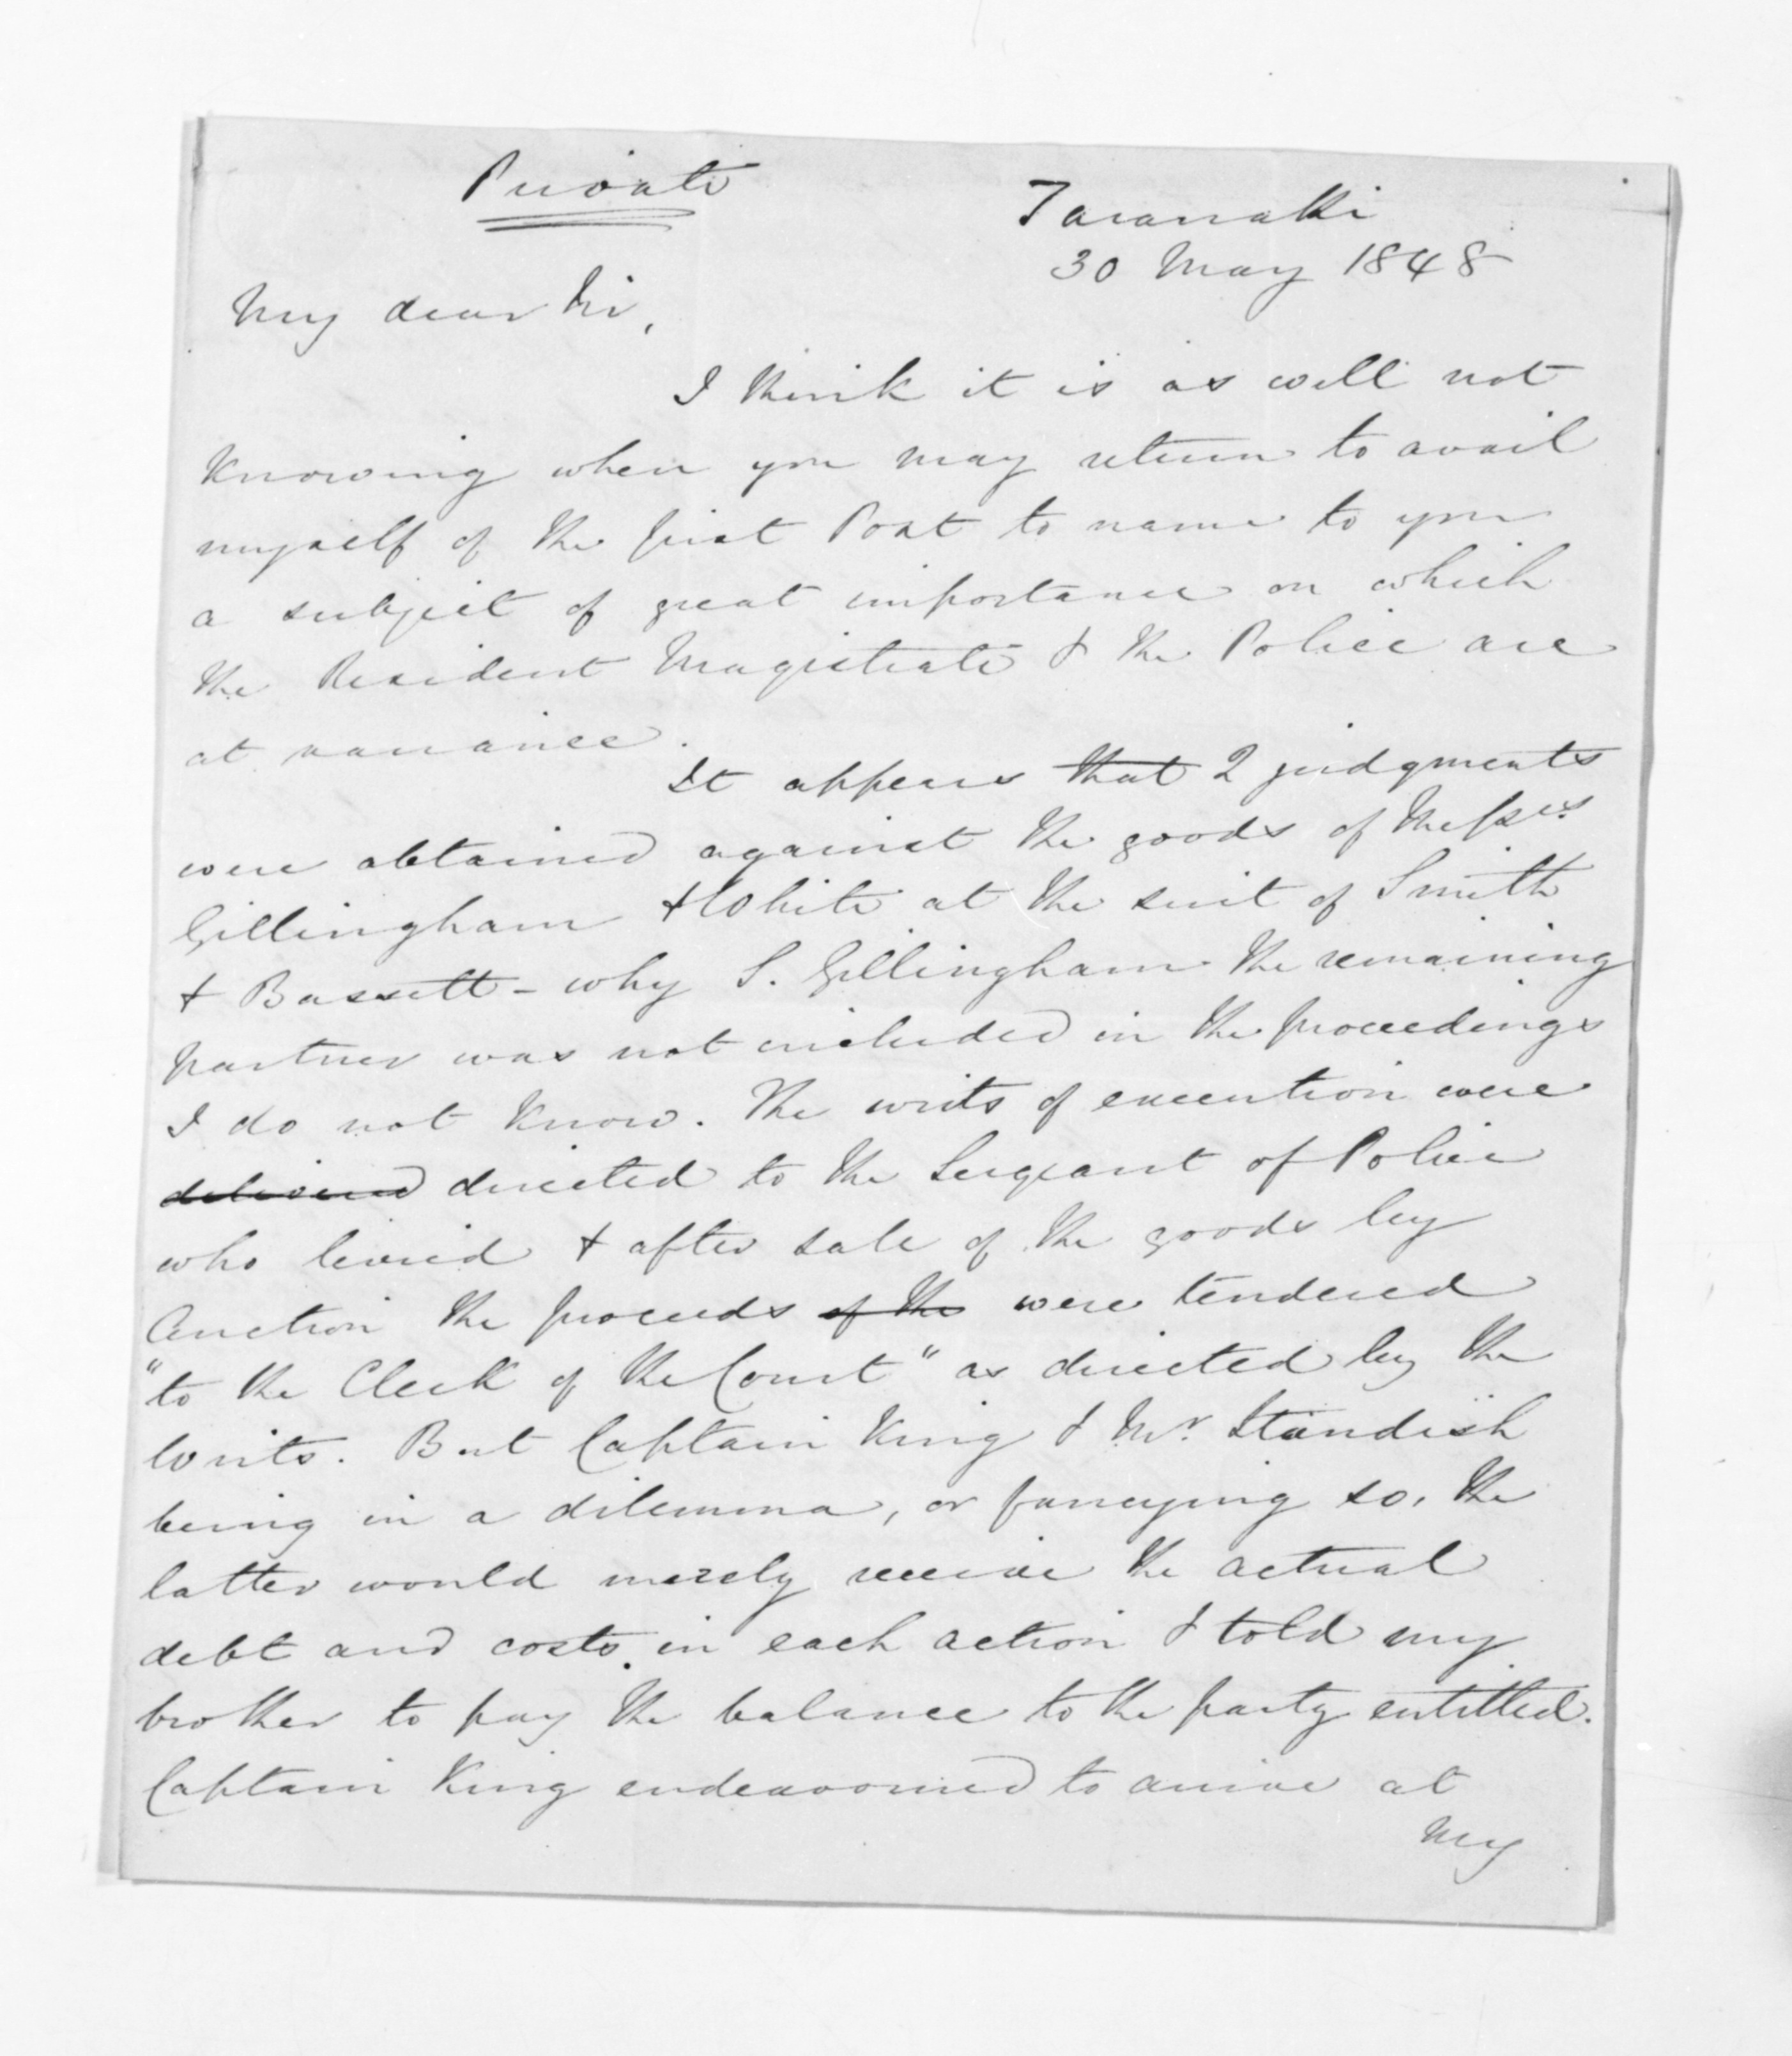 Private
Taranaki
30 May 1848
My dear Sir,
I think it is as well not
knowing when you may return to avail
myself of the first Post to name to you
a subject of great importance on which
the Resident Magistrate & the Police are
at variance.
It appears that 2 judgments
were obtained against the goods of Messrs.
Gillingham & White at the suit of Smith
& Bassett - why S. Gillingham the remaining
partner was not included in the proceedings
I do not know. The writs of execution were
delivered directed to the Sergeant of Police
who levied & after sale of the goods by
Auction the proceeds of the were tendered
"to the Clerk of the Court" as directed by the
Writs. But Captain King & Mr. Standish
being in a dilemma, or fancying so, the
latter would merely receive the actual
debt and costs in each action & told my
brother to pay the balance to the party entitled.
Captain King endeavoured to arrive at
My